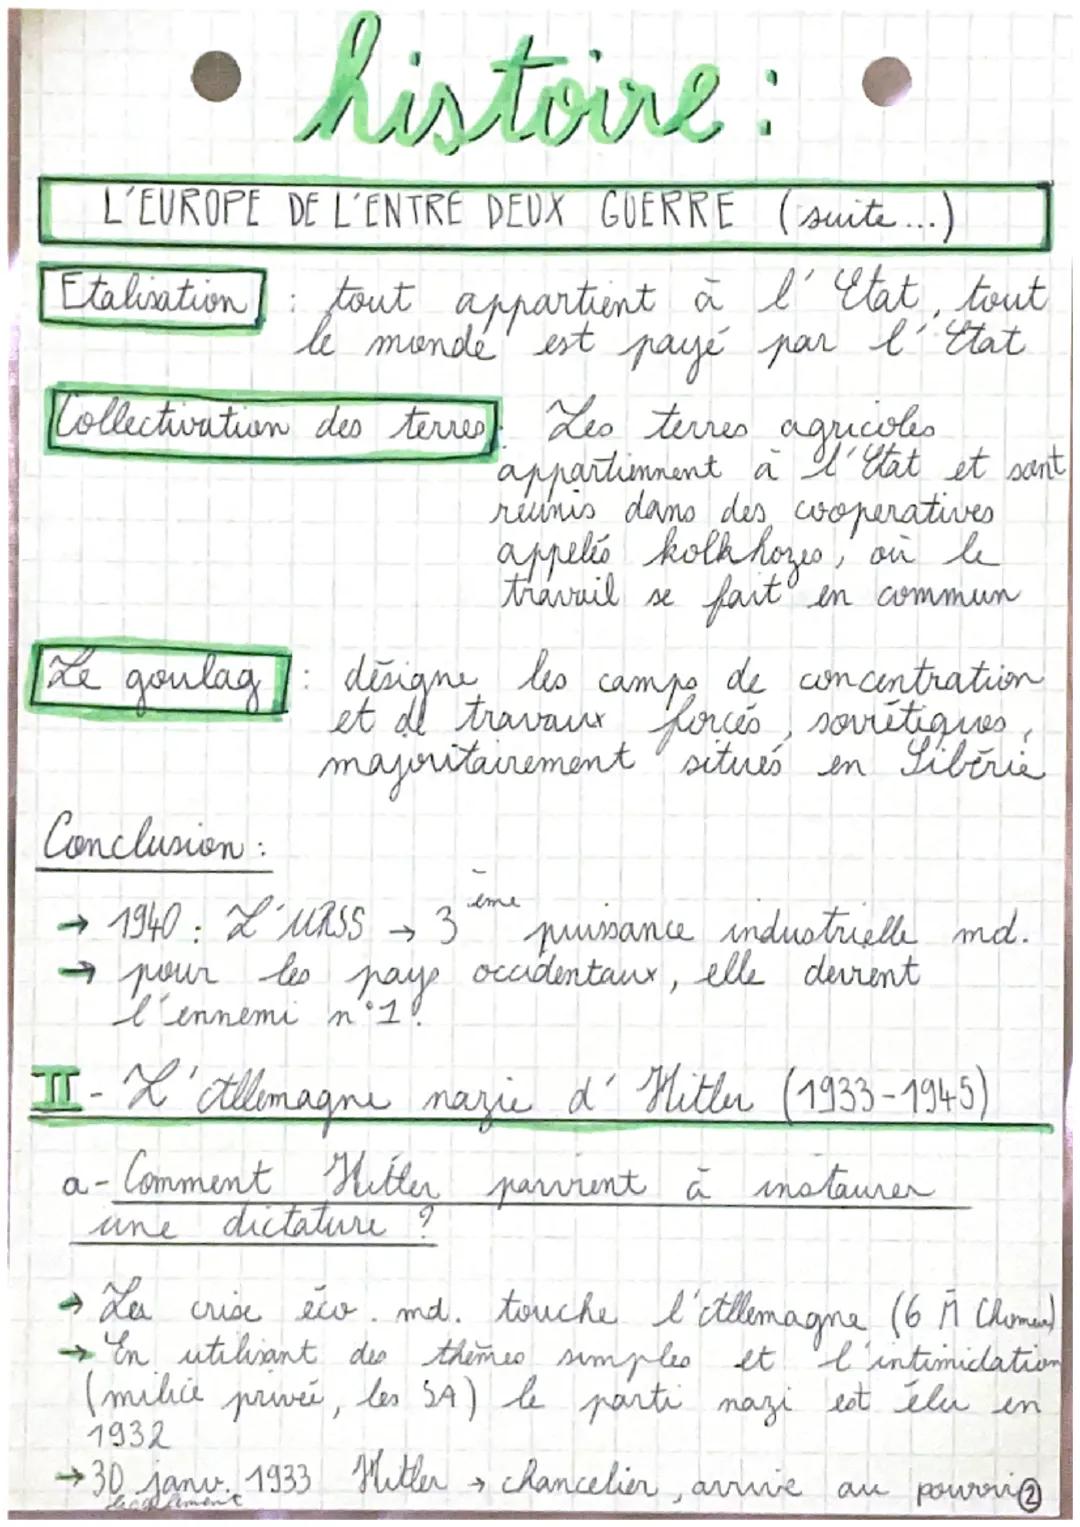 histoire :
L'EUROPE DE L'ENTRE DEUX GUERRE (suite...)
Etalisation : tout appartient à l'Etat, tout
le monde est payé par l'Etat
Collectivation des terres : Les terres agricoles
appartiennent à l'Etat et sont
réunis dans des cooperatives
appelés kolkhozes, où le
travail se fait en commun
Le goulag : désigne les camps de concentration
et de travaux forcés, soviétiques,
majoritairement situés en Sibérie
Conclusion :
→ 1940 : L'URSS → 3ème puissance industrielle md.
→ pour les pays occidentaux, elle devient
l'ennemi n°1.
II - L'Allemagne nazie d'Hitler (1933-1945)
a - Comment Hitler parvient à instaurer
une dictature ?
→ La crise éco. md. touche l'Allemagne (6 M Chomeur)
→ En utilisant des thèmes simples et l'intimidation
(milice privée, les SA) le parti nazi est élu en
1932
→ 30 janv. 1933 Hitler → chancelier, arrive au pouvoir
légalement
2